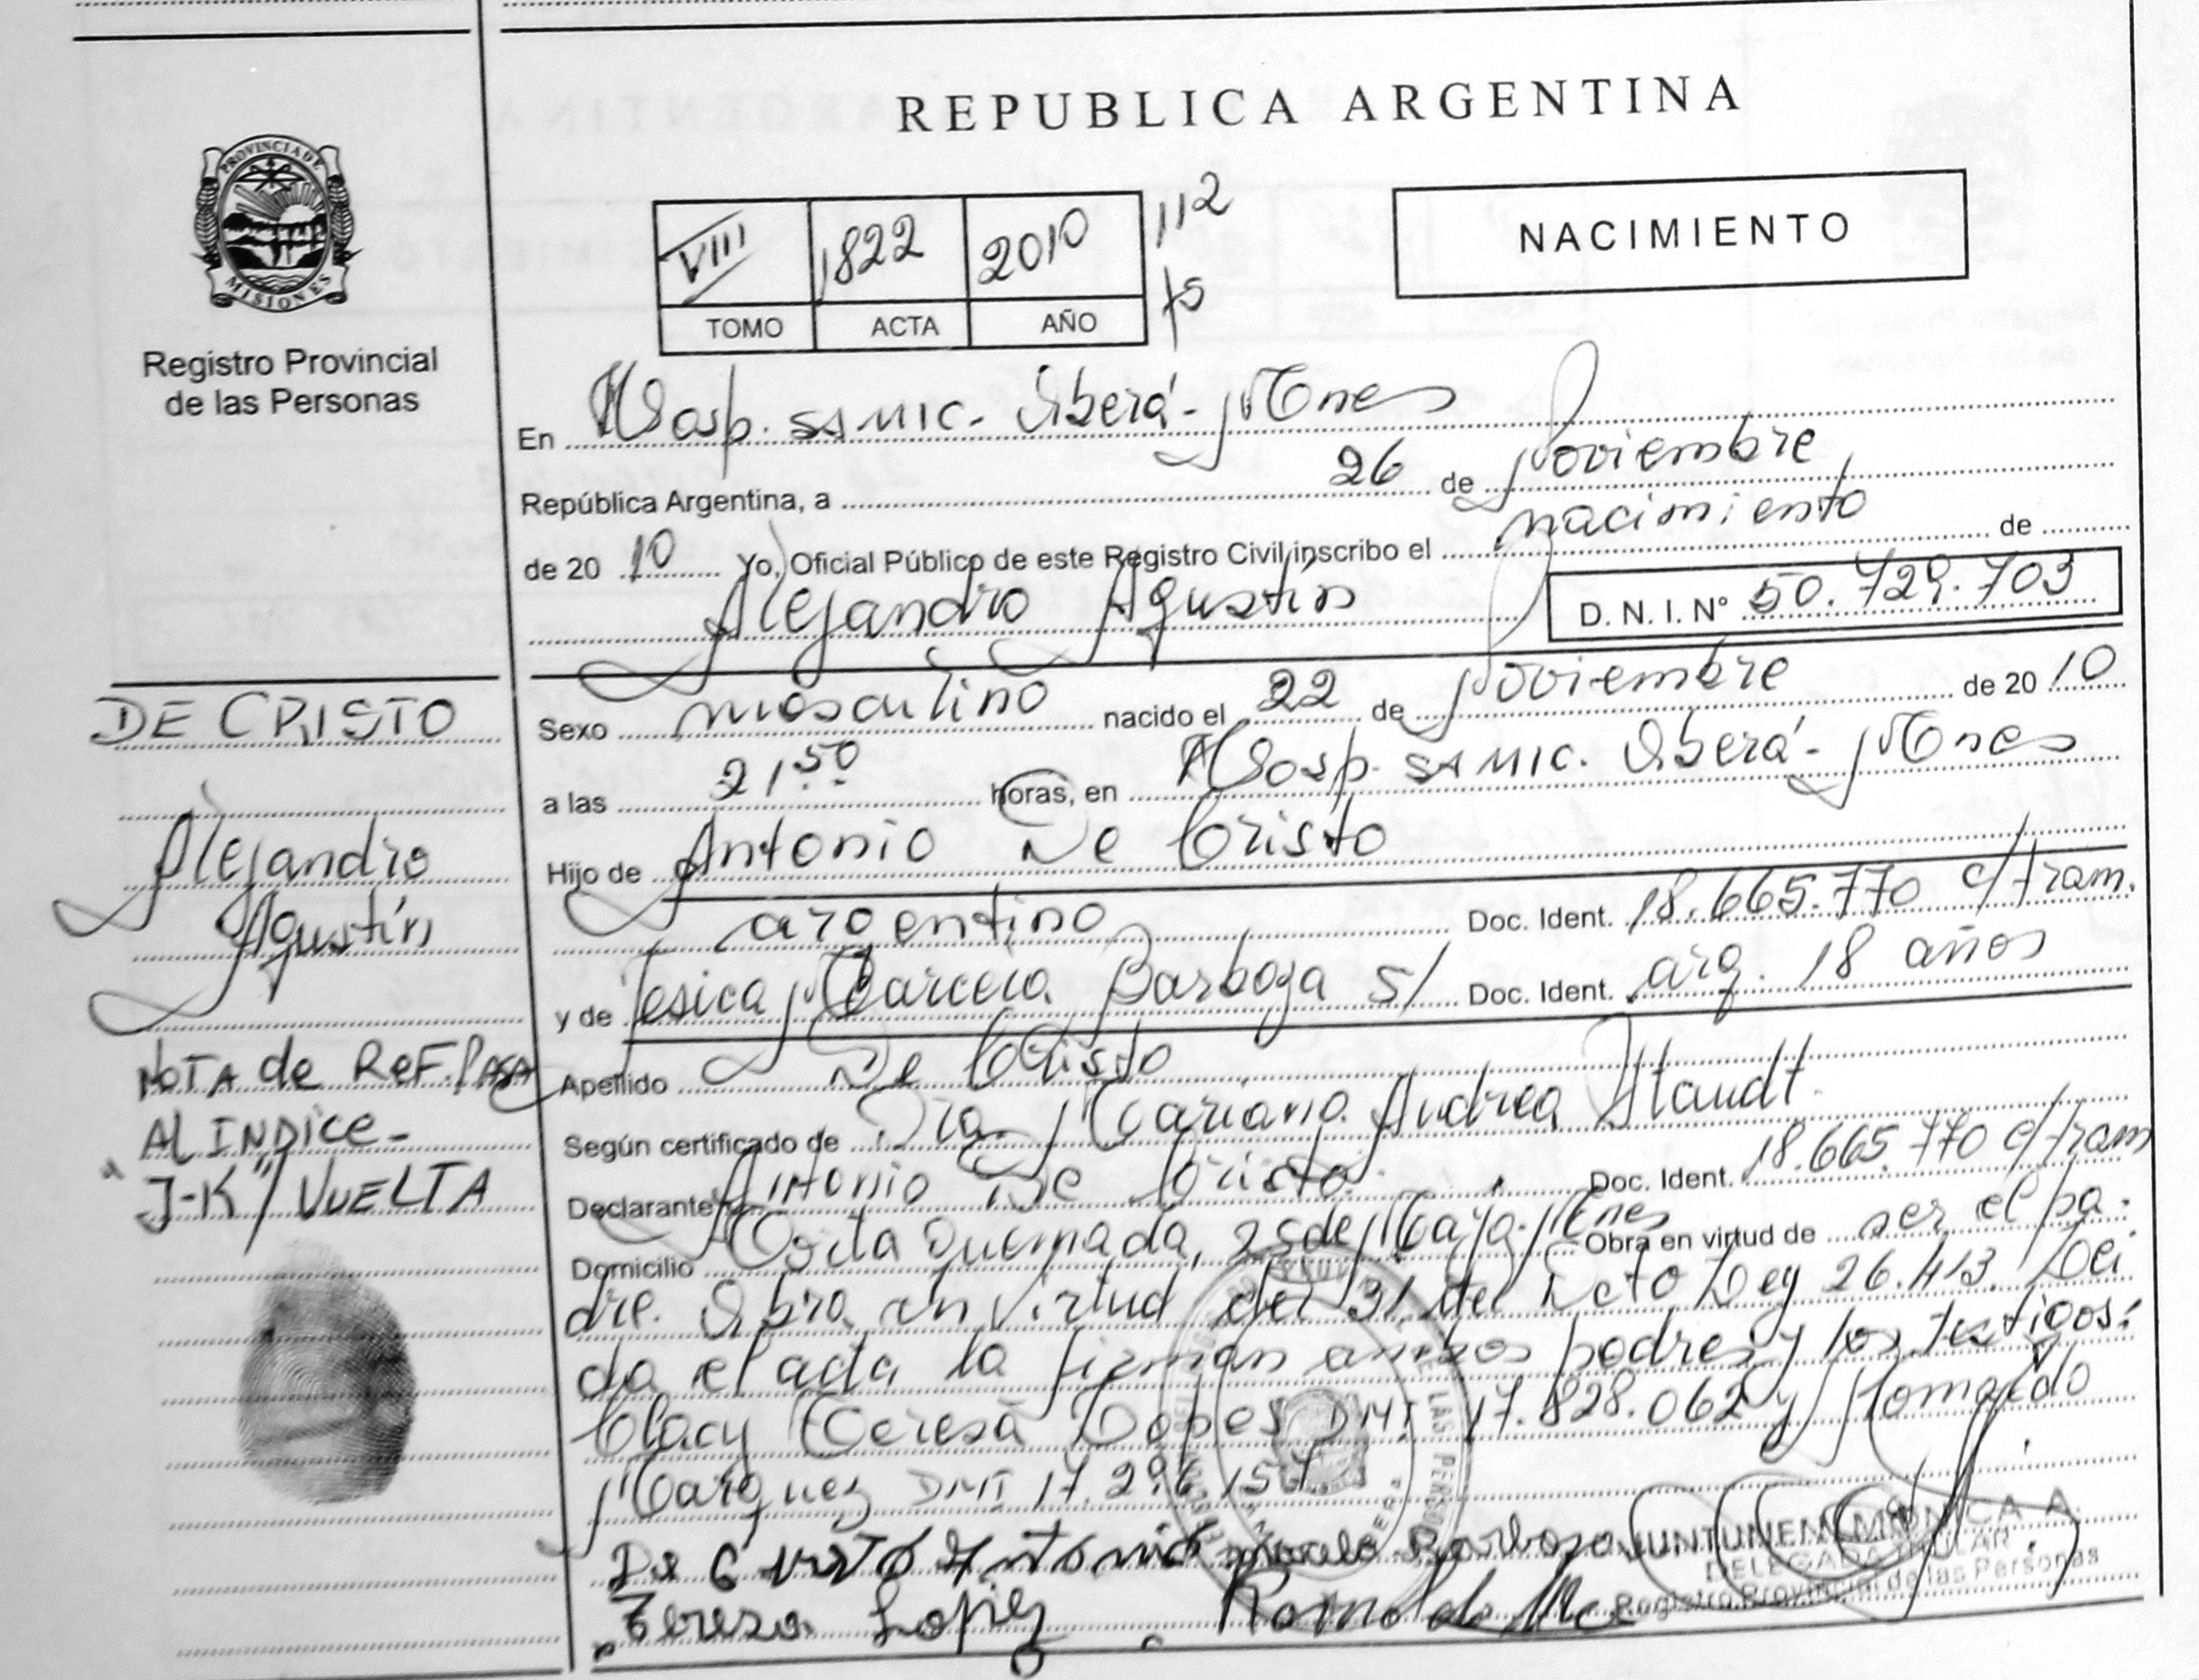 REPUBLICA ARGENTINA
PROVINCIA DE
MISIONES
Registro Provincial
de las Personas
VIII 1822 2010 112
TOMO ACTA AÑO
NACIMIENTO
En Hosp. SAMIC. Oberá - Mnes
República Argentina, a 26 de Noviembre
de 20 10 Yo, Oficial Público de este Registro Civil inscribo el nacimiento de
Alejandro Agustín D. N. I. Nº 50.729.703
DE CRISTO
Alejandro
Agustín
NOTA de REF. PASA
AL INDICE -
"J-K" / VUELTA
Sexo masculino nacido el 22 de Noviembre de 20 10
a las 21.50 horas, en Hosp. SAMIC. Oberá - Mnes
Hijo de Antonio De Cristo
argentino Doc. Ident. 18.665.770 c/tram.
y de Jesica Marcela Barboza S/ Doc. Ident. arg. 18 años
Apellido De Cristo
Según certificado de Dra. Mariana Andrea Staudt.
Declarante Antonio De Cristo Doc. Ident. 18.665.770 c/tram
Domicilio Quemada, 25 de Mayo - Mnes Obra en virtud de ser el pa-
dre. Obra en virtud del 31 del Dcto Ley 26.413. Leí
da el acta la firman ambos padres y los testigos:
Clacy Teresa Lopes DNI 17.828.062 y Romaldo
Marquez DNI 17.296.157
De Cristo Antonio Barboza
JUNTUNEN MONICA A.
DELEGADA TITULAR
Registro Provincial de las Personas
Tereza Lopez Romaldo